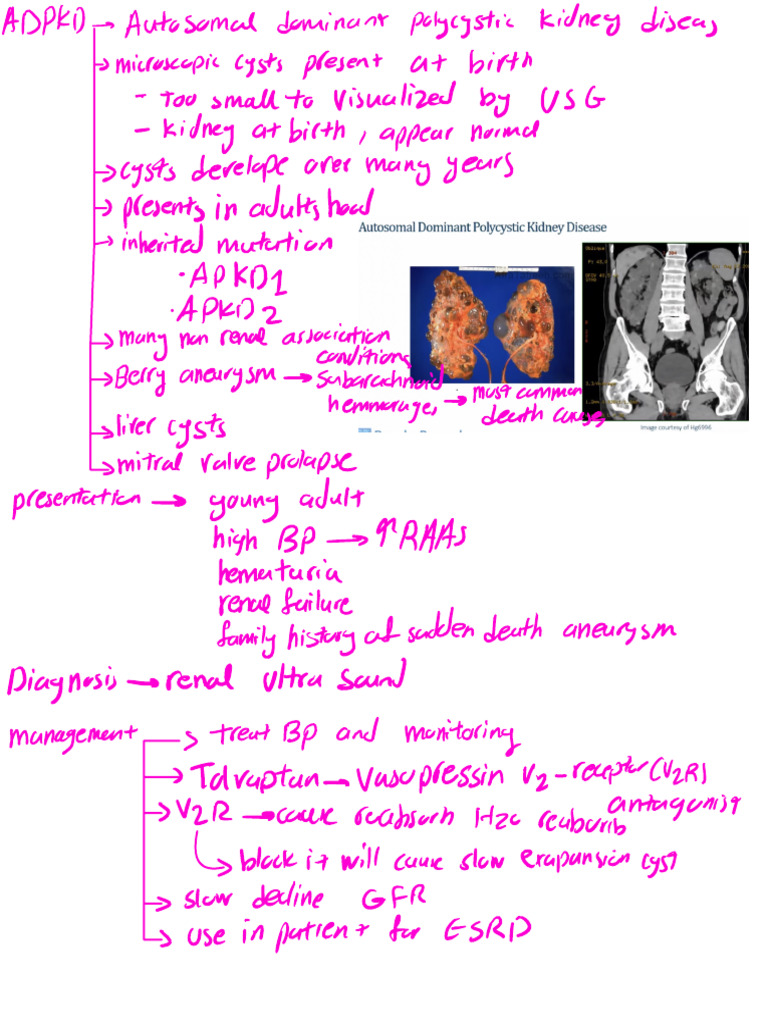 ADPKD → Autosomal dominant polycystic kidney diseas
→ microscopic cysts present at birth
- Too small to visualized by USG
- kidney at birth, appear normal
→ cysts develope over many years
→ presents in adults hood
→ inherited mutation
Autosomal Dominant Polycystic Kidney Disease
• APKD1
• APKD2
→ many non renal association conditions
→ Berry aneurysm → subarachnoid hemmorage, → most common death cause
→ liver cysts
Image courtesy of Hg6996
→ mitral valve prolapse
presentation → young adult
high BP → ↑RAAs
hematuria
renal failure
family history of sudden death aneurysm
Diagnosis → renal ultra sound
management → treat BP and monitoring
→ Tolvaptan → Vasopressin V2 - receptor (V2R) antagonist
→ V2R → cause reabsorb H2O
→ block it will cause slow exapansion cyst
→ slow decline GFR
→ use in patient for ESRD